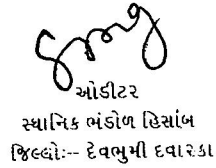 ઓડીટર
સ્થાનિક ભંડોળ હિસાંબ
જિલ્લોઃ-- દેવભુમી દવારકા